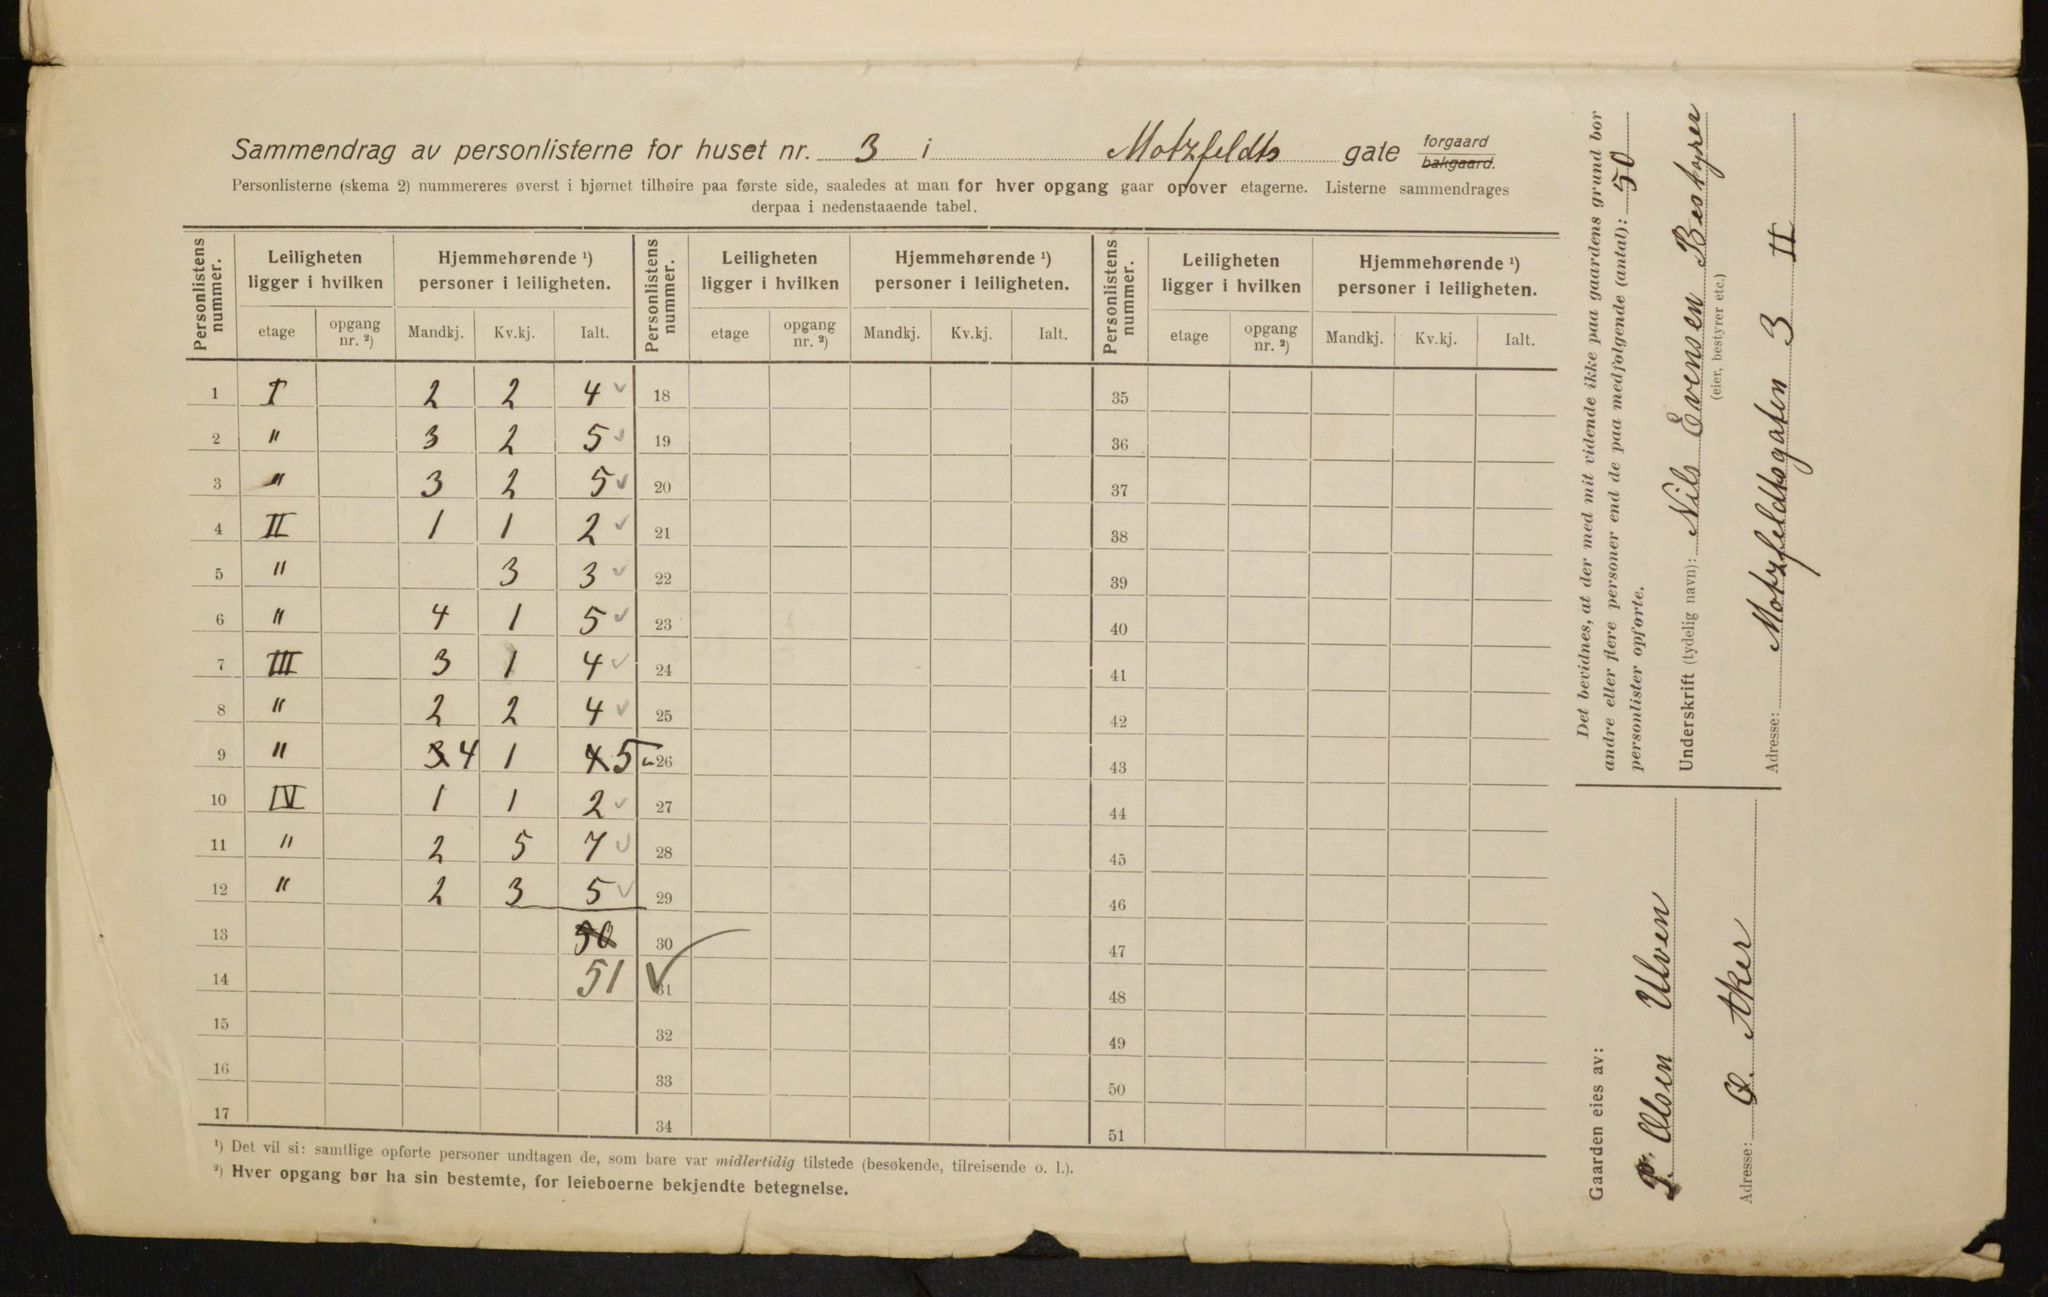 Sammendrag av personlisterne for huset nr. 3 i Motzfeldts gate forgaard bakgaard.
Personlisterne (skema 2) nummereres øverst i hjørnet tilhøire paa første side, saaledes at man for hver opgang gaar opover etagerne. Listerne sammendrages
derpaa i nedenstaaende tabel.
Personlistens nummer. Leiligheten ligger i hvilken Hjemmehørende ¹) personer i leiligheten. Personlistens nummer. Leiligheten ligger i hvilken Hjemmehørende ¹) personer i leiligheten. Personlistens nummer. Leiligheten ligger i hvilken Hjemmehørende ¹) personer i leiligheten.
etage opgang nr. ²) Mandkj. Kv.kj. Ialt. etage opgang nr. ²) Mandkj. Kv.kj. Ialt. etage opgang nr. ²) Mandkj. Kv.kj. Ialt.
1 I 2 2 4 ✓ 18 35
2 " 3 2 5 ✓ 19 36
3 " 3 2 5 ✓ 20 37
4 II 1 1 2 ✓ 21 38
5 " 3 3 ✓ 22 39
6 " 4 1 5 ✓ 23 40
7 III 3 1 4 ✓ 24 41
8 " 2 2 4 ✓ 25 42
9 " 3 4 1 4 5 26 43
10 IV 1 1 2 ✓ 27 44
11 " 2 5 7 ✓ 28 45
12 " 2 3 5 ✓ 29 46
13 50 30 47
14 51 ✓ 31 48
15 32 49
16 33 50
17 34 51
¹) Det vil si: samtlige opførte personer undtagen de, som bare var midlertidig tilstede (besøkende, tilreisende o. l.).
²) Hver opgang bør ha sin bestemte, for leieboerne bekjendte betegnelse.
Det bevidnes, at der med mit vidende ikke paa gaardens grund bor
andre eller flere personer end de paa medfølgende (antal): 50
personlister opførte.
Underskrift (tydelig navn): Nils Evensen Bestyrer
(eier, bestyrer etc.)
Adresse: Motzfeldtsgaten 3 II
Gaarden eies av:
P. Olsen Ulven
Adresse: Ø. Aker